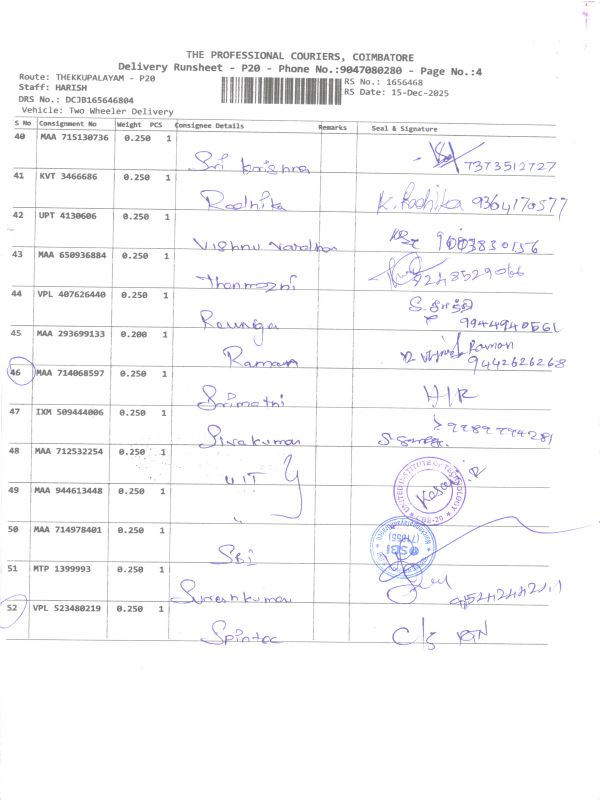 THE PROFESSIONAL COURIERS, COIMBATORE
Delivery Runsheet - P20 - Phone No.:9047080280 - Page No.:4
Route: THEKKUPALAYAM - P20
RS No.: 1656468
Staff: HARISH
RS Date: 15-Dec-2025
DRS No.: DCJB165646804
Vehicle: Two Wheeler Delivery
S No Consignment No Weight PCS Consignee Details Remarks Seal & Signature
40 MAA 715130736 0.250 1
Sri Krishna 7373512727
41 KVT 3466686 0.250 1
Radhika K. Radhika 9364170577
42 UPT 4130606 0.250 1
Vishnu Vardhan
43 MAA 650936884 0.250 1
Thenmozhi 9248529066
44 VPL 407626440 0.250 1
9944940561
45 MAA 293699133 0.200 1
Raman Raman
9442626268
46 MAA 714068597 0.250 1
Srimathi H/R
47 IXM 509444006 0.250 1
Sivakumar
48 MAA 712532254 0.250 1
UIT
UNITED INSTITUTE OF TECHNOLOGY
49 MAA 944613448 0.250 1
50 MAA 714978401 0.250 1
SBI SBI
51 MTP 1399993 0.250 1
Sureshkumar
52 VPL 523480219 0.250 1
Spintec